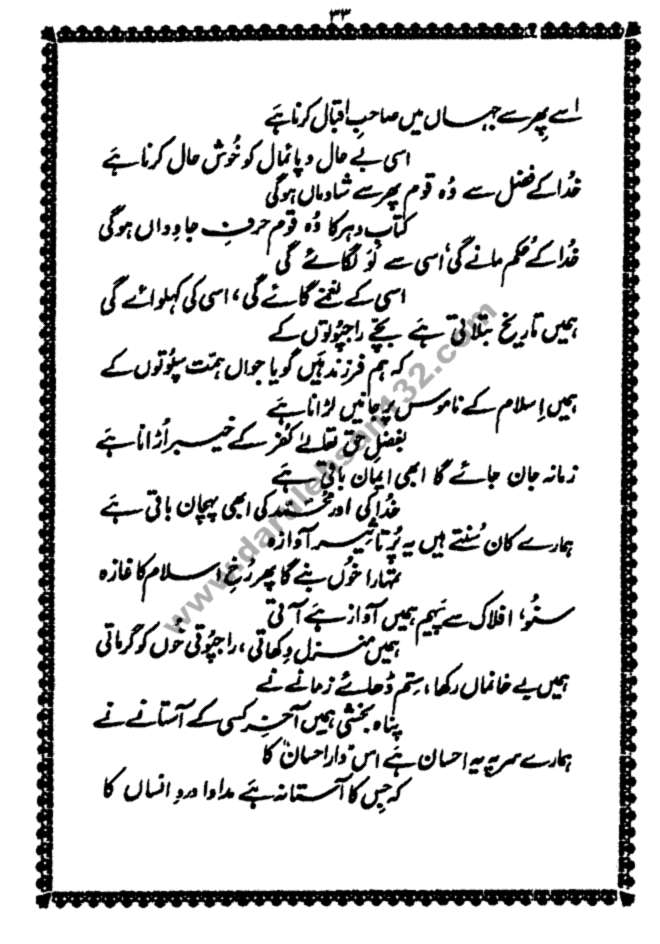 ۳۳
اسے پھر سے جہاں میں صاحبِ اقبال کرنا ہے
اسی بے حال و پائمال کو خُوش حال کرنا ہے
خُدا کے فضل سے وُہ قوم پھر سے شادماں ہوگی
کتابِ دہر کا وُہ قوم حرفِ جاوِداں ہوگی
خُدا کے حُکم مانے گی، اسی سے لَو لگائے گی
اسی کے نغمے گائے گی، اسی کی کہلوائے گی
ہمیں تاریخ بتلاتی ہے بچّے راجپُوتوں کے
کہ ہم فرزند ہَیں گویا جواں ہمّت سپُوتوں کے
ہمیں اِسلام کے ناموس پر جانیں لڑانا ہے
بفضلِ حق تعالےٰ کُفر کے خیبر اُڑانا ہے
زمانہ جان جائے گا ابھی ایمان باقی ہے
خُدا کی اور محمّد کی ابھی پہچان باقی ہے
ہمارے کان سُنتے ہیں یہ پُر تاثیر آوازہ
تمہارا خُوں بنے گا پھر رُخِ اسلام کا غازہ
سنُو، افلاک سے پَیہم ہمیں آواز ہے آتی
ہمیں منزل دِکھاتی، راجپُوتی خُوں کو گرماتی
ہمیں بے خانماں رکھا، سِتم ڈھائے زمانے نے
پناہ بخشی ہمیں آخر کسی کے آستانے نے
ہمارے سر پہ یہ احسان ہے اس "دار احسان" کا
کہ جس کا آستانہ ہے مداوا دردِ انساں کا
www.darulehsan132.com